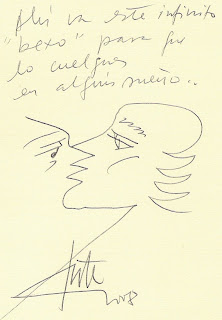 Ahí va este infinito
"bexo" para que
lo cuelgues
en algún sueño..
2008